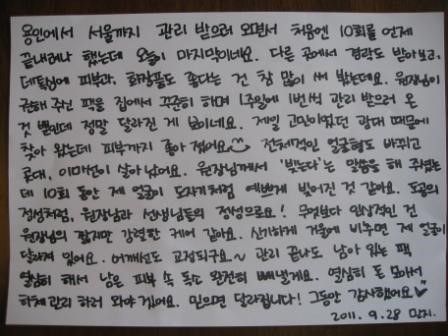 용인에서 서울까지 관리 받으러 오면서 처음엔 10회를 언제
끝내려나 했는데 오늘이 마지막이네요. 다른 곳에서 경락도 받아보고,
데톡싱에 피부과, 화장품도 좋다는 건 참 많이 써 봤는데요. 원장님이
권해 주신 팩을 집에서 꾸준히 하며 1주일에 1번씩 관리 받으러 온
건 뿐인데 정말 달라진 게 보이네요. 제일 고민이었던 광대 때문에
찾아 왔는데 피부까지 좋아졌어요 전체적인 얼굴형도 바뀌고
콧대, 이마선이 살아났어요. 원장님께서 '빚는다'는 말씀을 해 주셨는
데 10회 동안 제 얼굴이 도자기처럼 예쁘게 빚어진 것 같아요. 도공의
정성처럼, 원장님과 선생님들의 정성으로요! 무엇보다 인상적인 건
원장님의 짧지만 강력한 케어 같아요. 신기하게 거울에 비추면 제 얼굴이
달라져 있어요. 어깨선도 교정되구요~ 관리 끝나도 남아 있는 팩
열심히 해서 남은 피부 속 독소 완전히 빼낼게요. 열심히 돈 모아서
하체관리 하러 와야겠어요. 믿으면 달라집니다! 그동안 감사했어요
2011. 9. 28